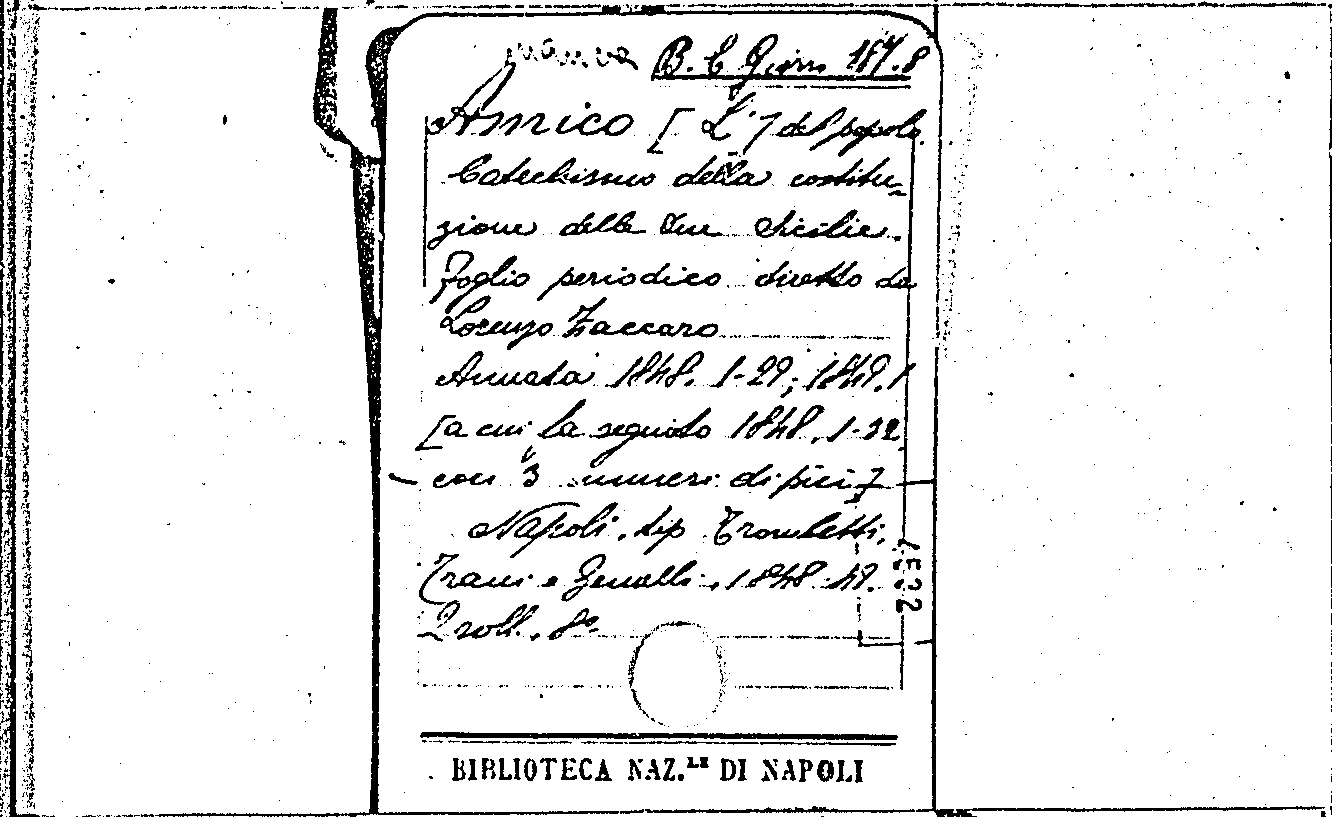 manca B. C. Giorn 187.8
Amico [L'] del popolo.
Catechismo della costitu=
zione delle Due Sicilie.
Foglio periodico diretto da
Lorenzo Zaccaro
Annata 1848. 1-29; 1849. 1
[a cui fa seguito 1848, 1-32
con 3 numeri dipiù]
Napoli, tip Trombetti,
Trani e Gemelli, 1848-49.
2 voll. 8º.
BIBLIOTECA NAZ.LE DI NAPOLI